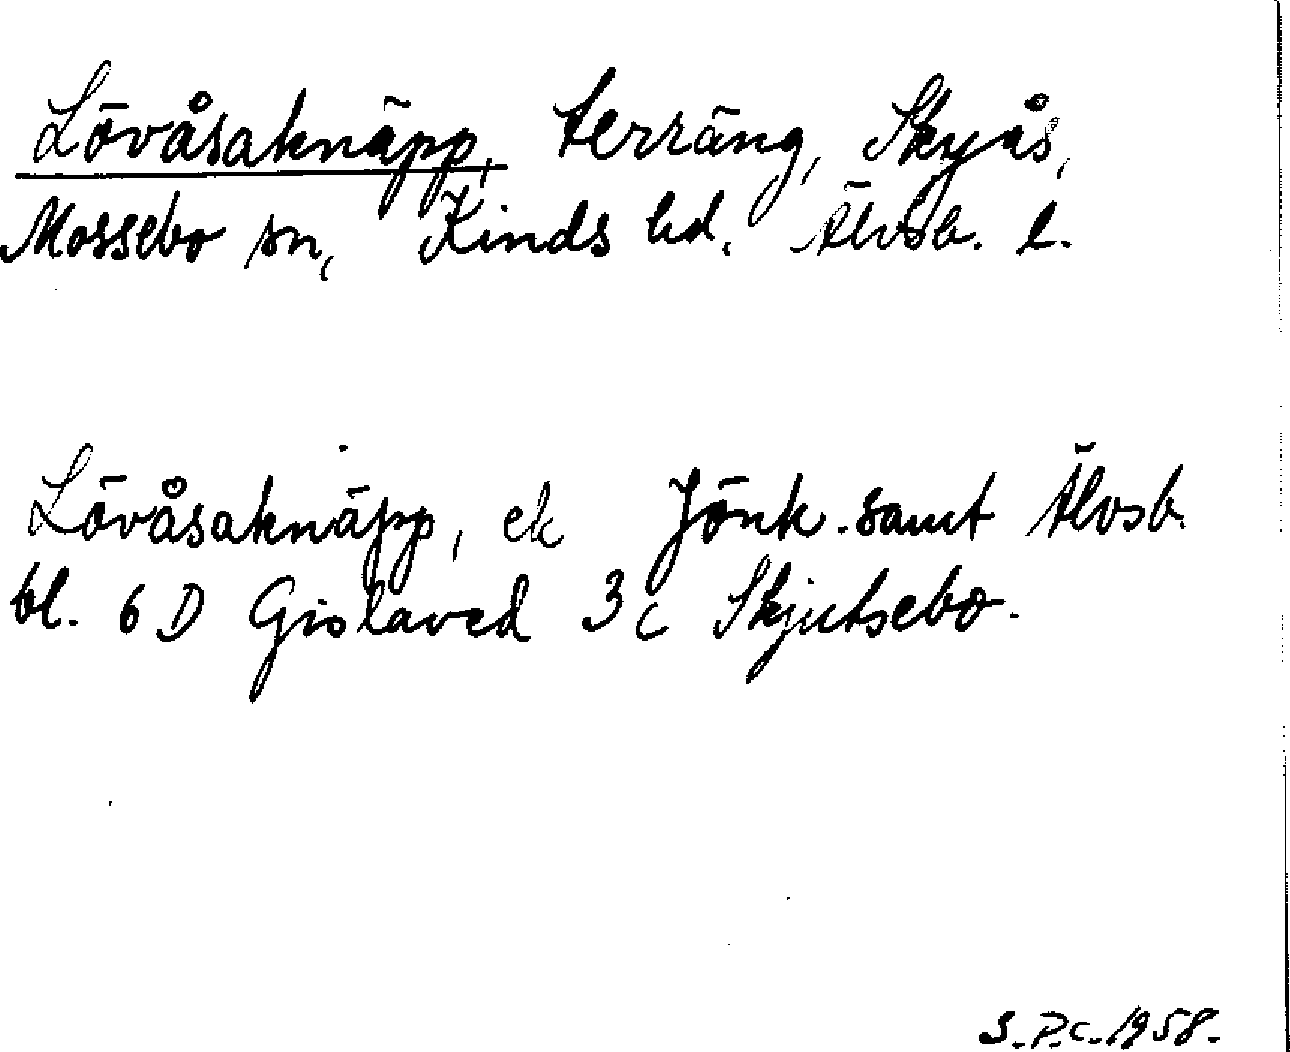 Lövåsaknäpp, terräng, Skyås,
Mossebo sn, Kinds hd, Älvsb. l.
Lövåsaknäpp, ek Jönk. samt Älvsb.
bl. 6 D Gislaved 3 c Skjutsebo.
S.P.C. 1958.